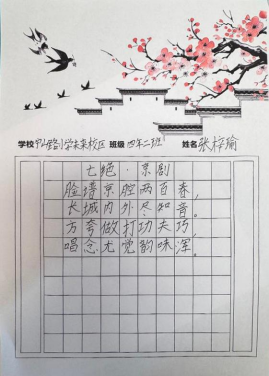 学校 中山路小学未来校区 班级 四年二班 姓名 张梓瑜
七绝·京剧
脸谱京腔两百春，
长城内外尽知音。
方夸做打功夫巧，
唱念尤觉韵味浑。